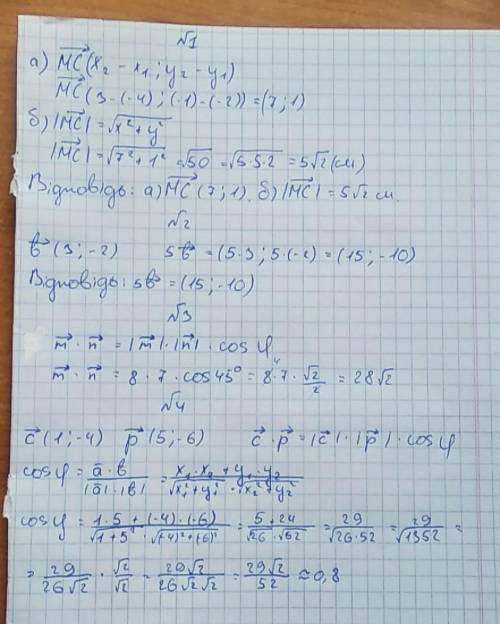 №1
а) MC⃗ (x₂ - x₁; y₂ - y₁)
MC⃗ (3 - (-4); (-1) - (-2)) = (7; 1)
б) |MC⃗| = √(x² + y²)
|MC⃗| = √(7² + 1²) = √50 = √(5·5·2) = 5√2 (см)
Відповідь: а) MC⃗ (7; 1), б) |MC⃗| = 5√2 см.
№2
b⃗ (3; -2) 5b⃗ = (5·3; 5·(-2)) = (15; -10)
Відповідь: 5b⃗ = (15; -10)
№3
m⃗ · n⃗ = |m⃗| · |n⃗| · cos φ
m⃗ · n⃗ = 8 · 7 · cos45° = 8 · 7 · √2/2 = 28√2
№4
c⃗ (1; -4) p⃗ (5; -6) c⃗ · p⃗ = |c⃗| · |p⃗| · cos φ
cos φ = a⃗ · b⃗ / |a⃗| · |b⃗| = x₁·x₂ + y₁·y₂ / √(x₁² + y₁²) · √(x₂² + y₂²)
cos φ = 1·5 + (-4)·(-6) / √(1 + 5²) · √((-4)² + (-6)²) = 5 + 24 / √26 · √52 = 29 / √(26·52) = 29 / √1352 =
= 29 / 26√2 · √2/√2 = 20√2 / 26√2√2 = 29√2 / 52 ≈ 0,8